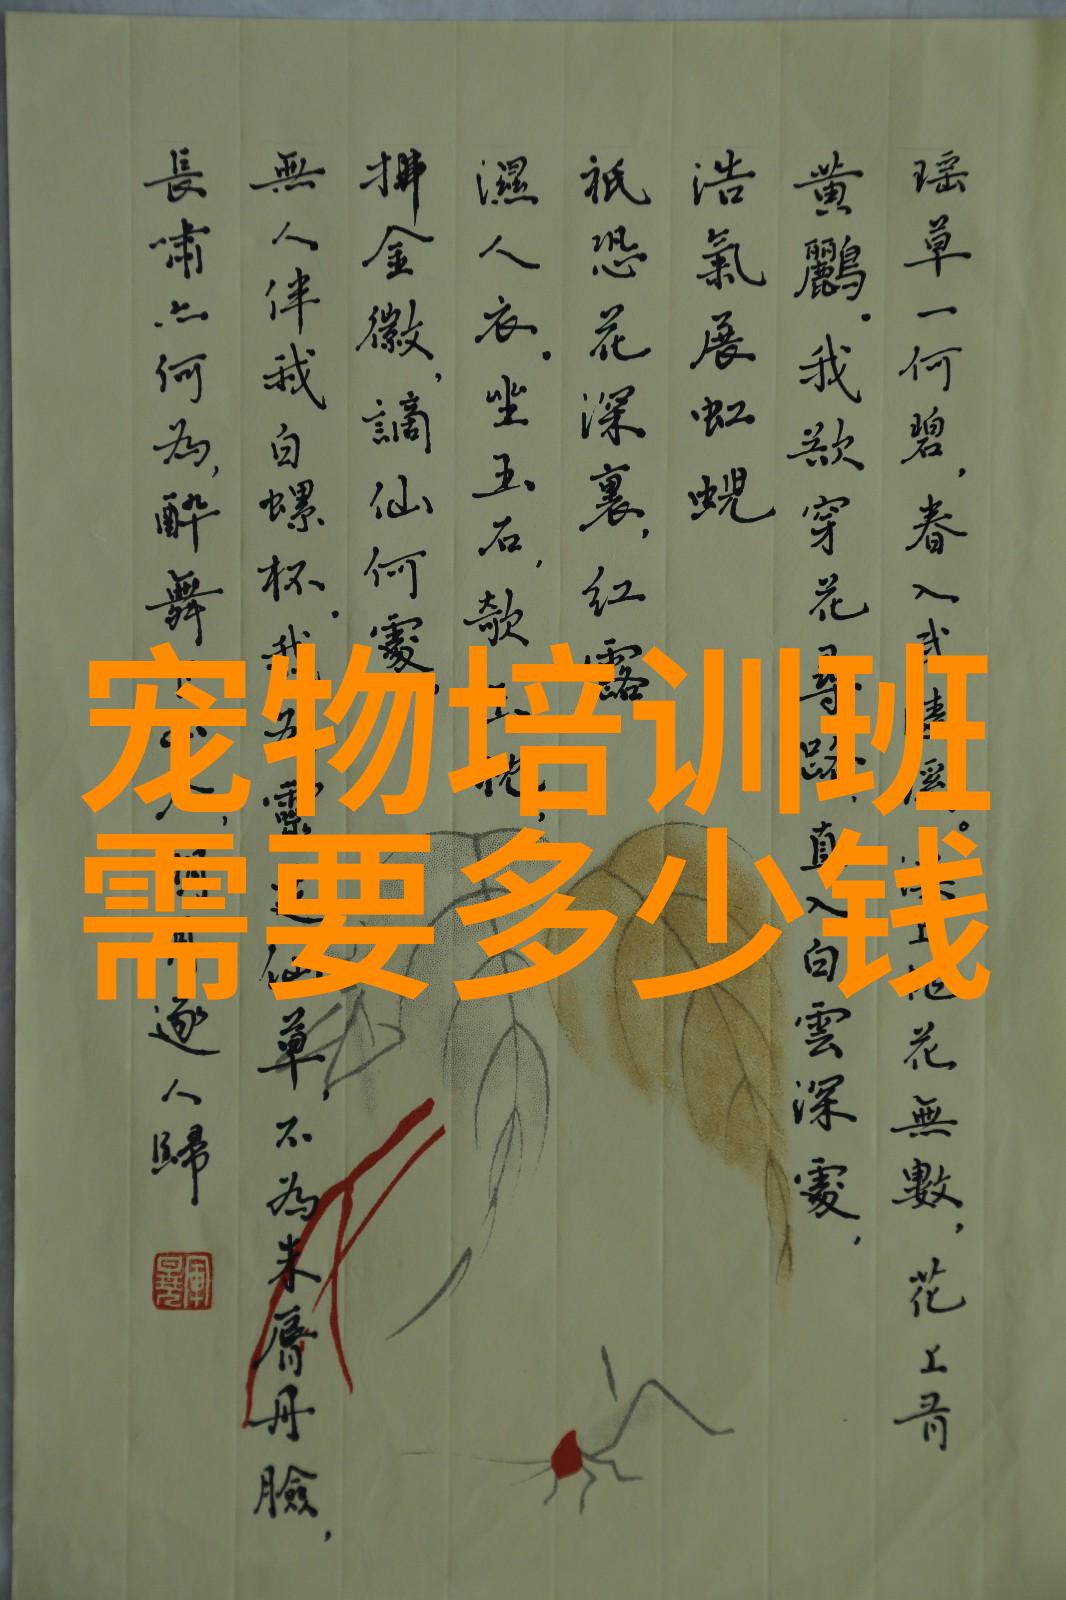 瑶草一何碧，春入武陵溪。溪上桃花無數，花上有
黄鸝。我欲穿花尋路，直入白雲深處，
浩氣展虹蜺
祇恐花深裏，紅露
濕人衣。坐玉石，欹玉枕，
拂金徽，謫仙何處，
無人伴我白螺杯。我為靈芝仙草，不為朱脣丹臉，
長嘯亦何為，醉舞下山 逐人歸
宠物培训班
需要多少钱